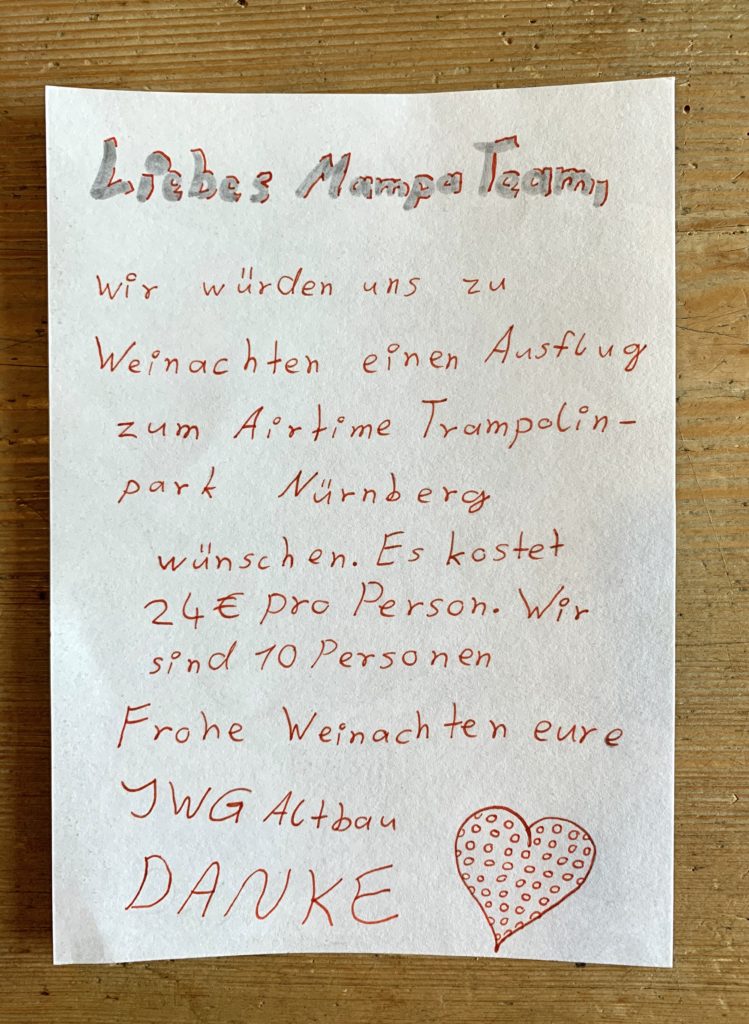 Liebes Mampa Team,
wir würden uns zu
Weinachten einen Ausflug
zum Airtime Trampolin-
park Nürnberg
wünschen. Es kostet
24€ pro Person. Wir
sind 10 Personen
Frohe Weinachten eure
JWG Altbau
DANKE